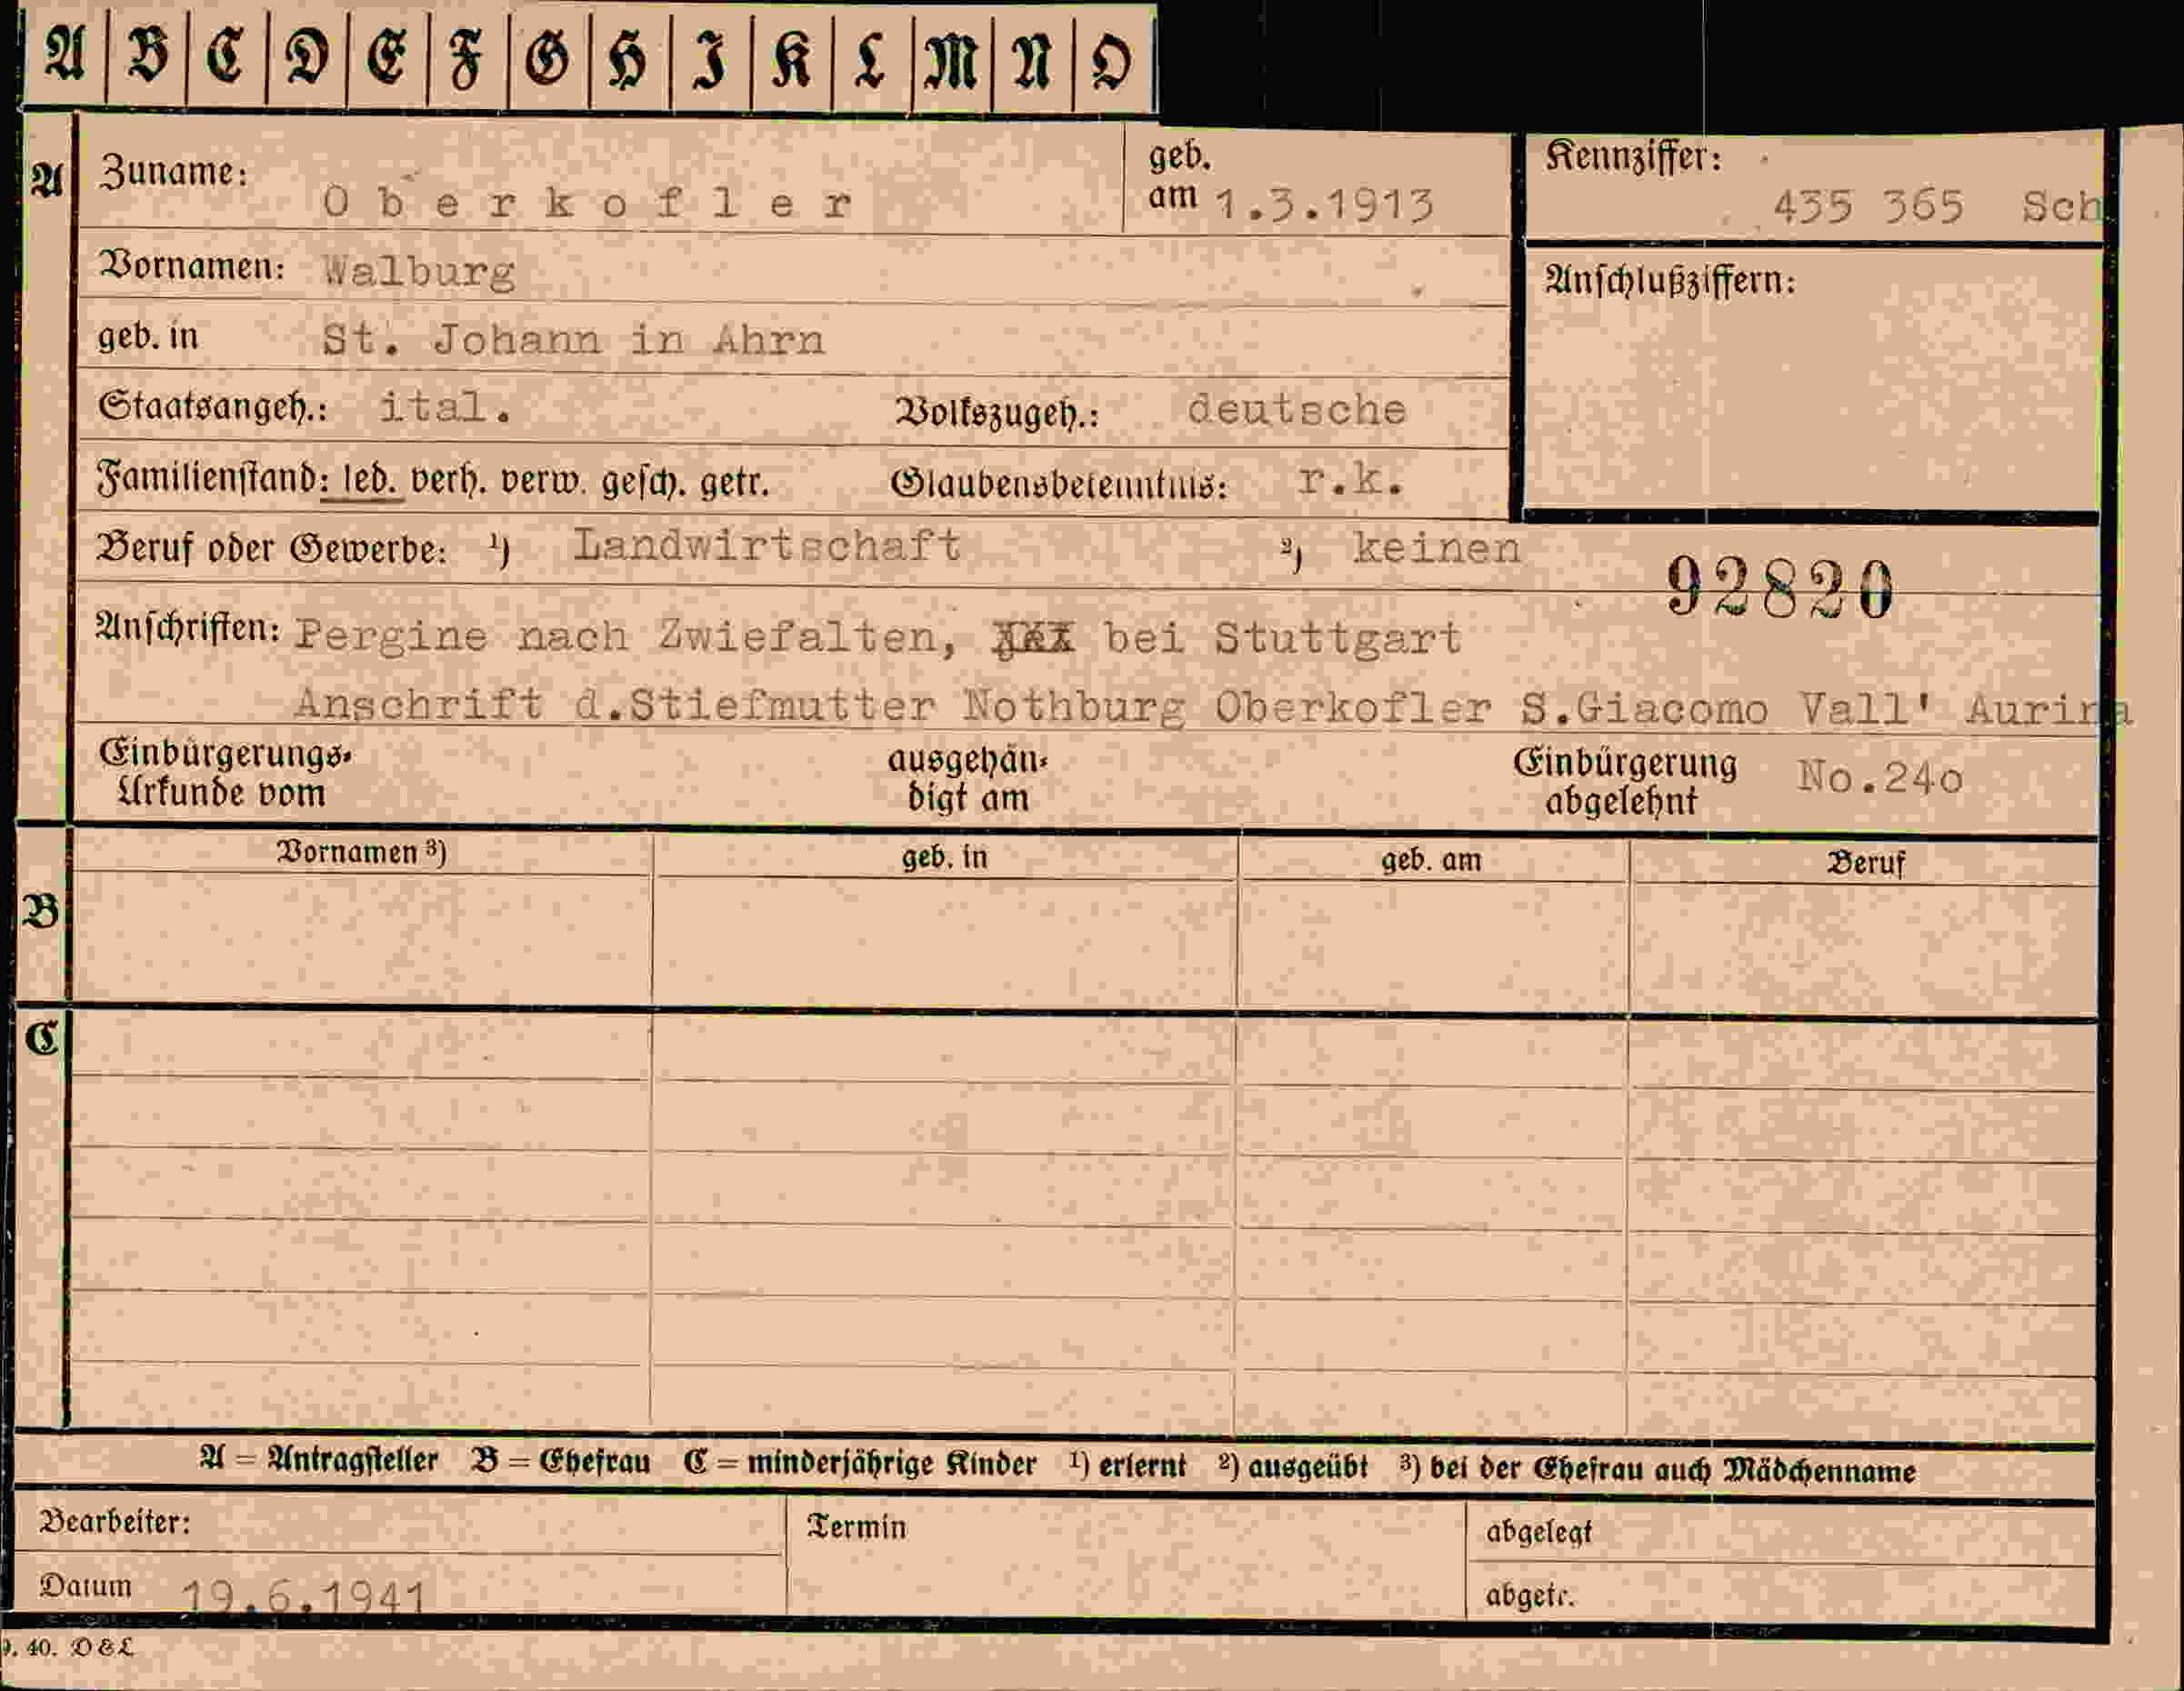 A B C D E F G H I K L M N O
A Zuname: Oberkofler geb. am 1.3.1913 Kennziffer: 435 365 Sch
Vornamen: Walburg Anschlußziffern:
geb. in St. Johann in Ahrn
Staatsangeh.: ital. Volkszugeh.: deutsche
Familienstand: led. verh. verw. gesch. getr. Glaubensbekenntnis: r.k.
Beruf oder Gewerbe: ¹) Landwirtschaft ²) keinen
92820
Anschriften: Pergine nach Zwiefalten, bei Stuttgart
Anschrift d.Stiefmutter Nothburg Oberkofler S.Giacomo Vall' Aurina
Einbürgerungs-Urkunde vom ausgehändigt am Einbürgerung abgelehnt No.24o
B Vornamen ³) geb. in geb. am Beruf
C
A = Antragsteller B = Ehefrau C = minderjährige Kinder ¹) erlernt ²) ausgeübt ³) bei der Ehefrau auch Mädchenname
Bearbeiter: Termin abgelegt
Datum 19.6.1941 abgetr.
9. 40. D & L